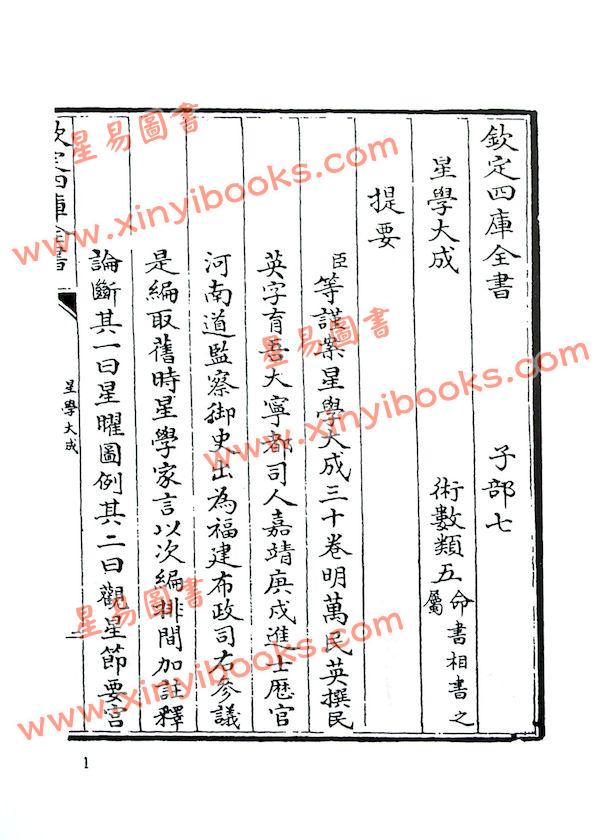 欽定四庫全書 子部七
星學大成 術數類五命書相書之屬
提要
臣等謹案星學大成三十卷明萬民英撰民
英字育吾大寧都司人嘉靖庚戌進士歷官
河南道監察御史出為福建布政司右參議
是編取舊時星學家言以次編排間加註釋
論斷其一曰星曜圖例其二曰觀星節要宮
欽定四庫全書
星學大成
一
1
星易圖書
www.xinyibooks.com
星易圖書
www.xinyibooks.com
星易圖書
www.xinyibooks.com